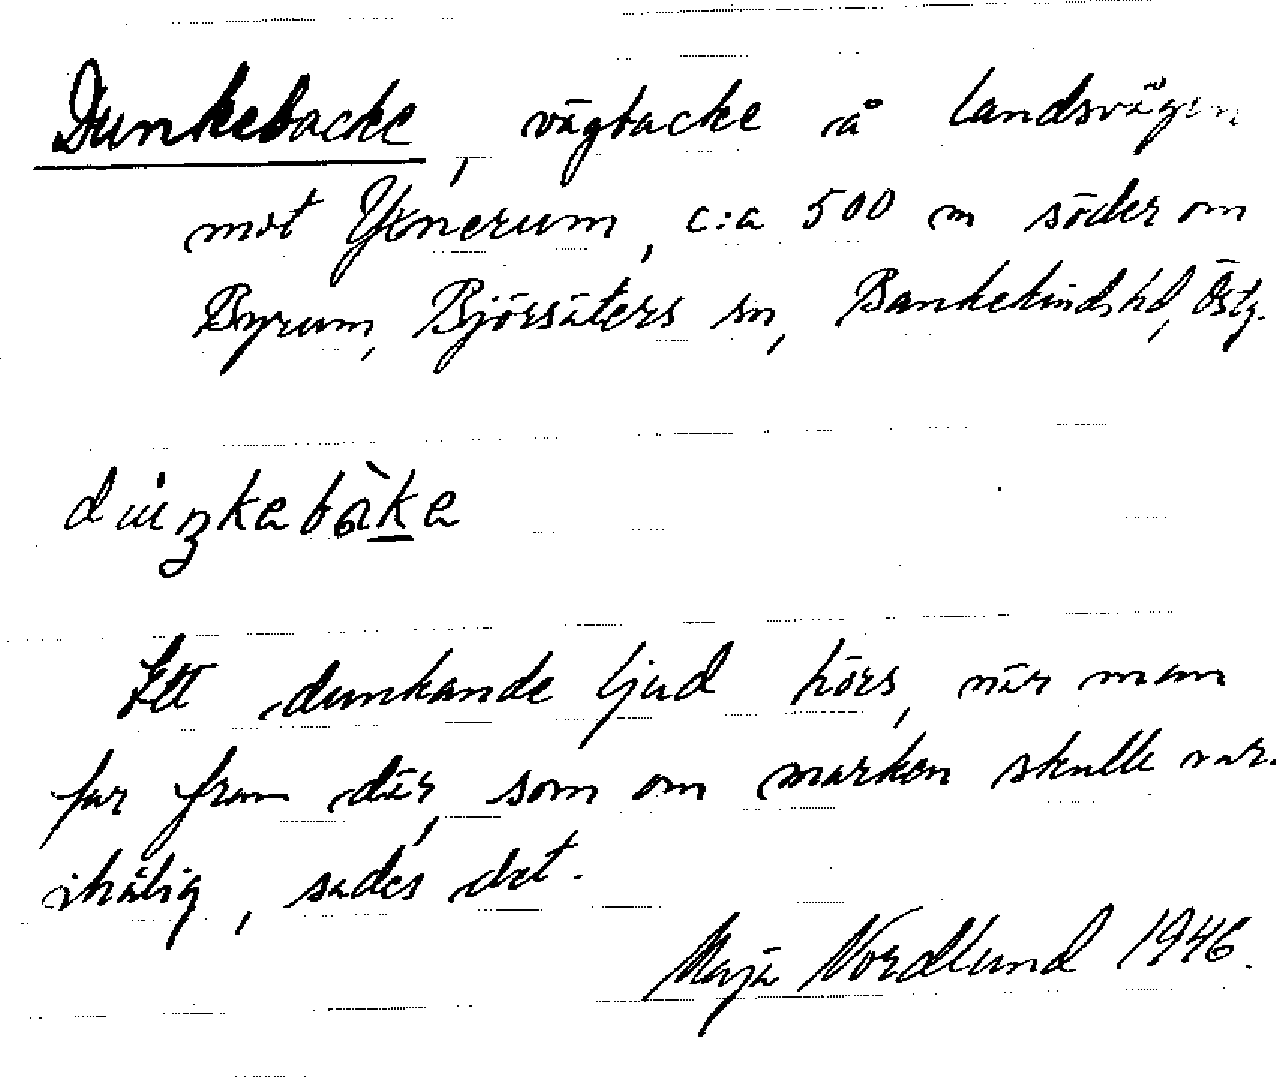 Dunkebacke, vägbacke å landsvägen
mot Yxnerum, c:a 500 m söder om
Byrum, Björsäters sn, Bankekinds hd, Östg.
Ett dunkande ljud hörs, när man
far fram där, som om marken skulle var.
ihålig, sades det.
Maja Nordlund 1946.